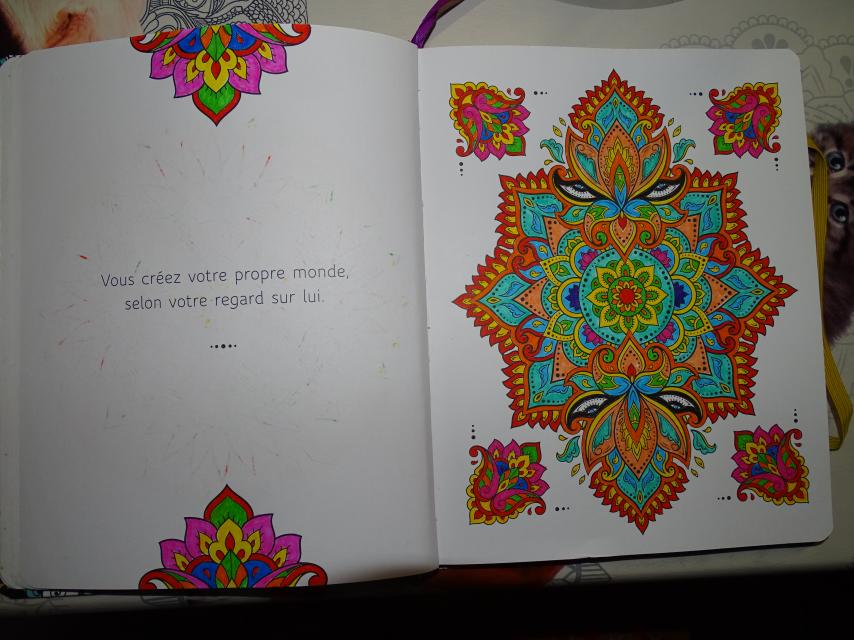 Vous créez votre propre monde,
selon votre regard sur lui.